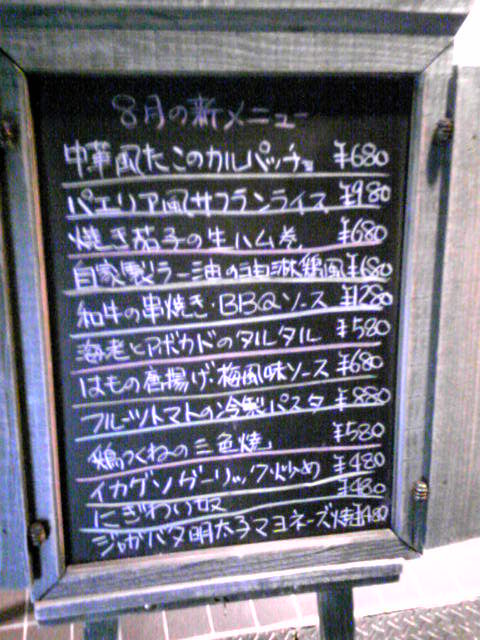 8月の新メニュー
中華風たこのカルパッチョ ¥680
パエリア風サフランライス ¥980
焼き茄子の生ハム巻 ¥680
自家製ラー油のヨロ淋鶏風 ¥680
和牛の串焼き・BBQソース ¥1280
海老とアボカドのタルタル ¥580
はもの唐揚げ・梅風味ソース ¥680
フルーツトマトの冷製パスタ ¥880
鶏つくねの三色焼 ¥580
イカゲソガーリック炒め ¥480
にぎわい奴 ¥480
ジャガバタ明太子マヨネーズ焼 ¥480